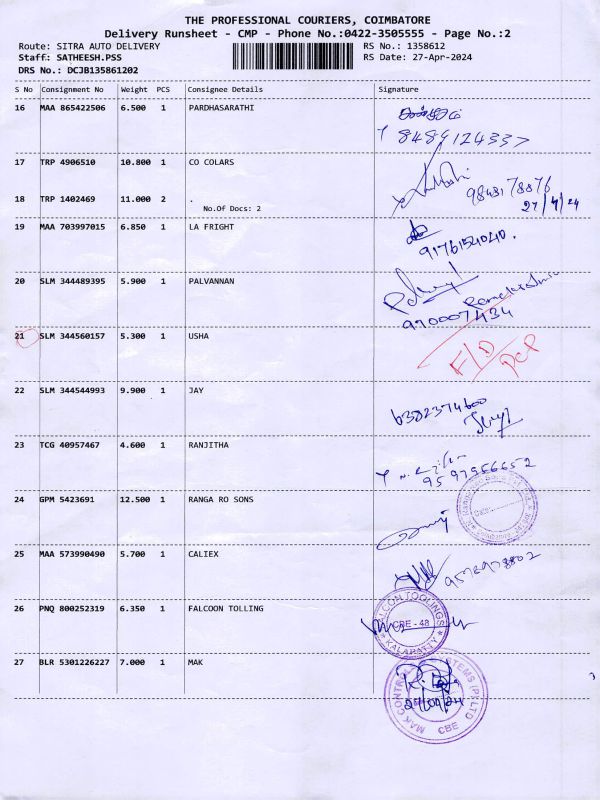 THE PROFESSIONAL COURIERS, COIMBATORE
Delivery Runsheet - CMP - Phone No.:0422-3505555 - Page No.:2
Route: SITRA AUTO DELIVERY
RS No.: 1358612
Staff: SATHEESH.PSS
RS Date: 27-Apr-2024
DRS No.: DCJB135861202
S No Consignment No Weight PCS Consignee Details Signature
16 MAA 865422506 6.500 1 PARDHASARATHI
8489124337
17 TRP 4906510 10.800 1 CO COLARS
9843178876
18 TRP 1402469 11.000 2 .
27/4/24
No.Of Docs: 2
19 MAA 703997015 6.850 1 LA FRIGHT
9176154040.
20 SLM 344489395 5.900 1 PALVANNAN
970007434
21 SLM 344560157 5.300 1 USHA
F/D PCP
22 SLM 344544993 9.900 1 JAY
6382374600
23 TCG 40957467 4.600 1 RANJITHA
9597956652
24 GPM 5423691 12.500 1 RANGA RO SONS
Date:
25 MAA 573990490 5.700 1 CALIEX
26 PNQ 800252319 6.350 1 FALCOON TOLLING
FALCON TOOLINGS
CBE - 48
KALAPATTY
27 BLR 5301226227 7.000 1 MAK
MAK CONTROLS SYSTEMS (P) LTD
CBE